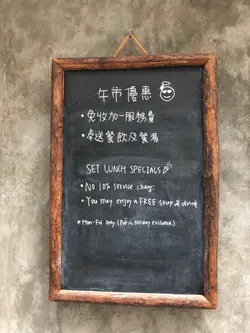 午市優惠
• 免收加一服務費
• 奉送餐飲及餐湯
SET LUNCH SPECIALS
• No 10% service charge
• You may enjoy a FREE soup & drink
* Mon-Fri only (Public Holiday excluded)